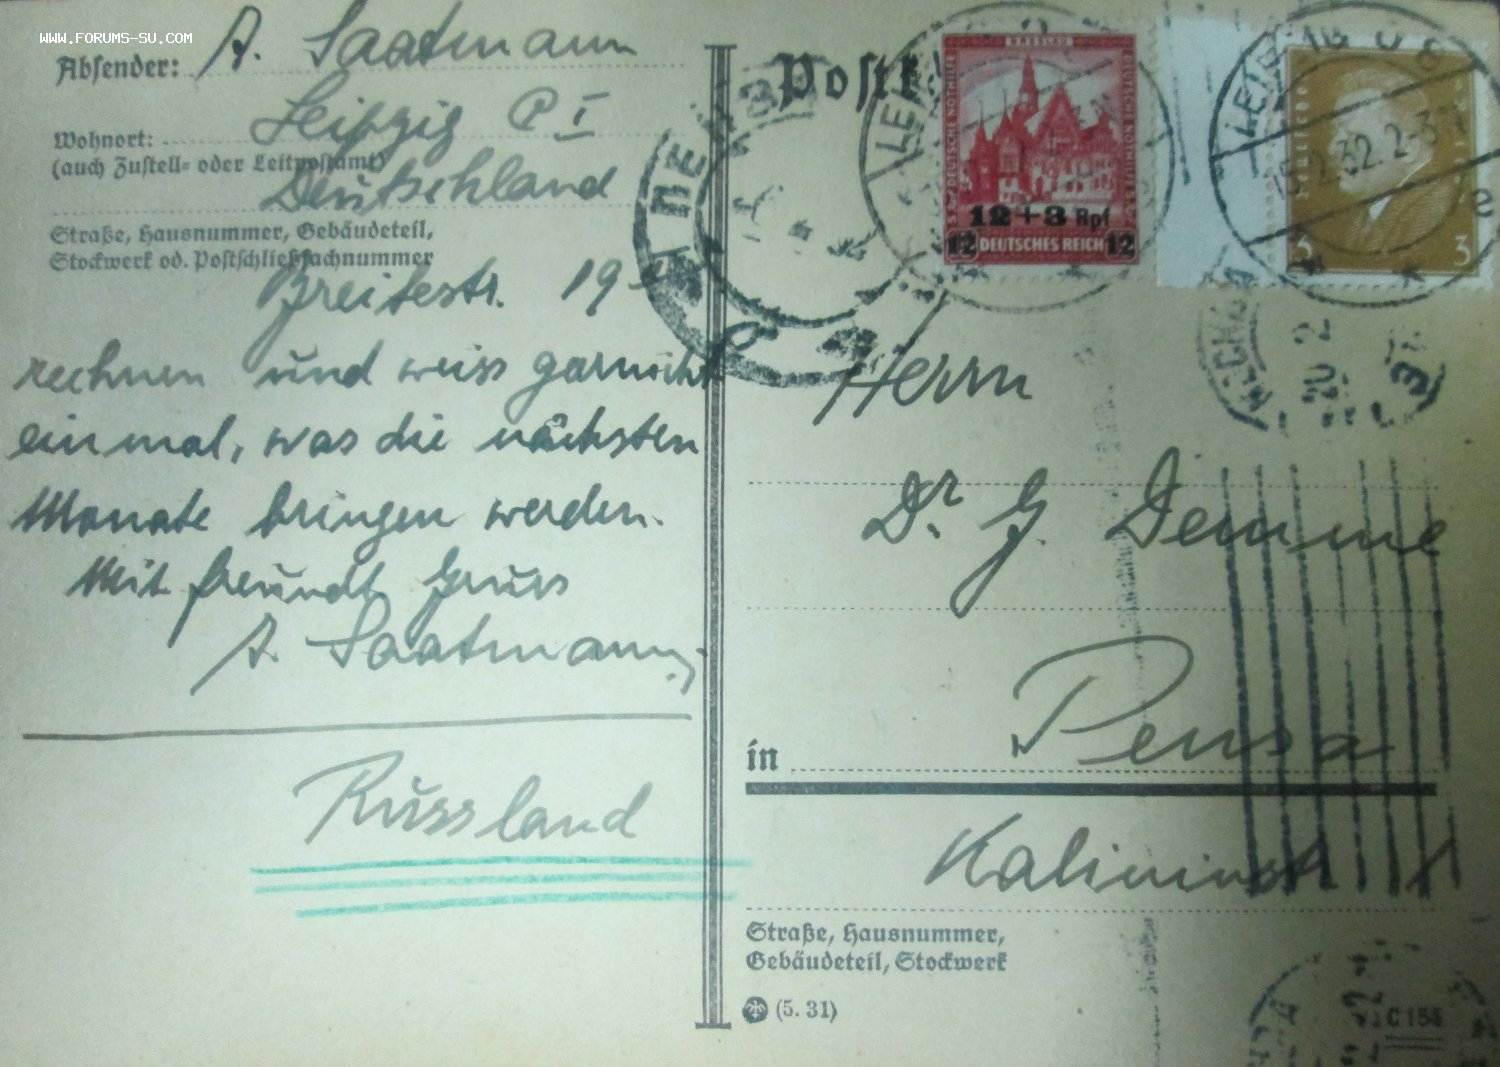 WWW.FORUMS-SU.COM
Absender: A. Saatmann
Wohnort: Leipzig P I
(auch Zustell- oder Leitpostamt)
Deutschland
Straße, Hausnummer, Gebäudeteil,
Stockwerk od. Postschließfachnummer
Breitestr. 19
rechnen und weiss garnicht
einmal, was die nächsten
Monate bringen werden.
Mit freundl. Gruss
A. Saatmann
Russland
BRESLAU
DEUTSCHE NOTHILFE
12+3 Rpf
12 DEUTSCHES REICH 12
3 3
LEIPZIG
15.2.32.2-3
20 2
Herrn
Dr. G. Demme
in Pensa
Kalininstr. 1
Straße, Hausnummer,
Gebäudeteil, Stockwerk
(5. 31)
C154